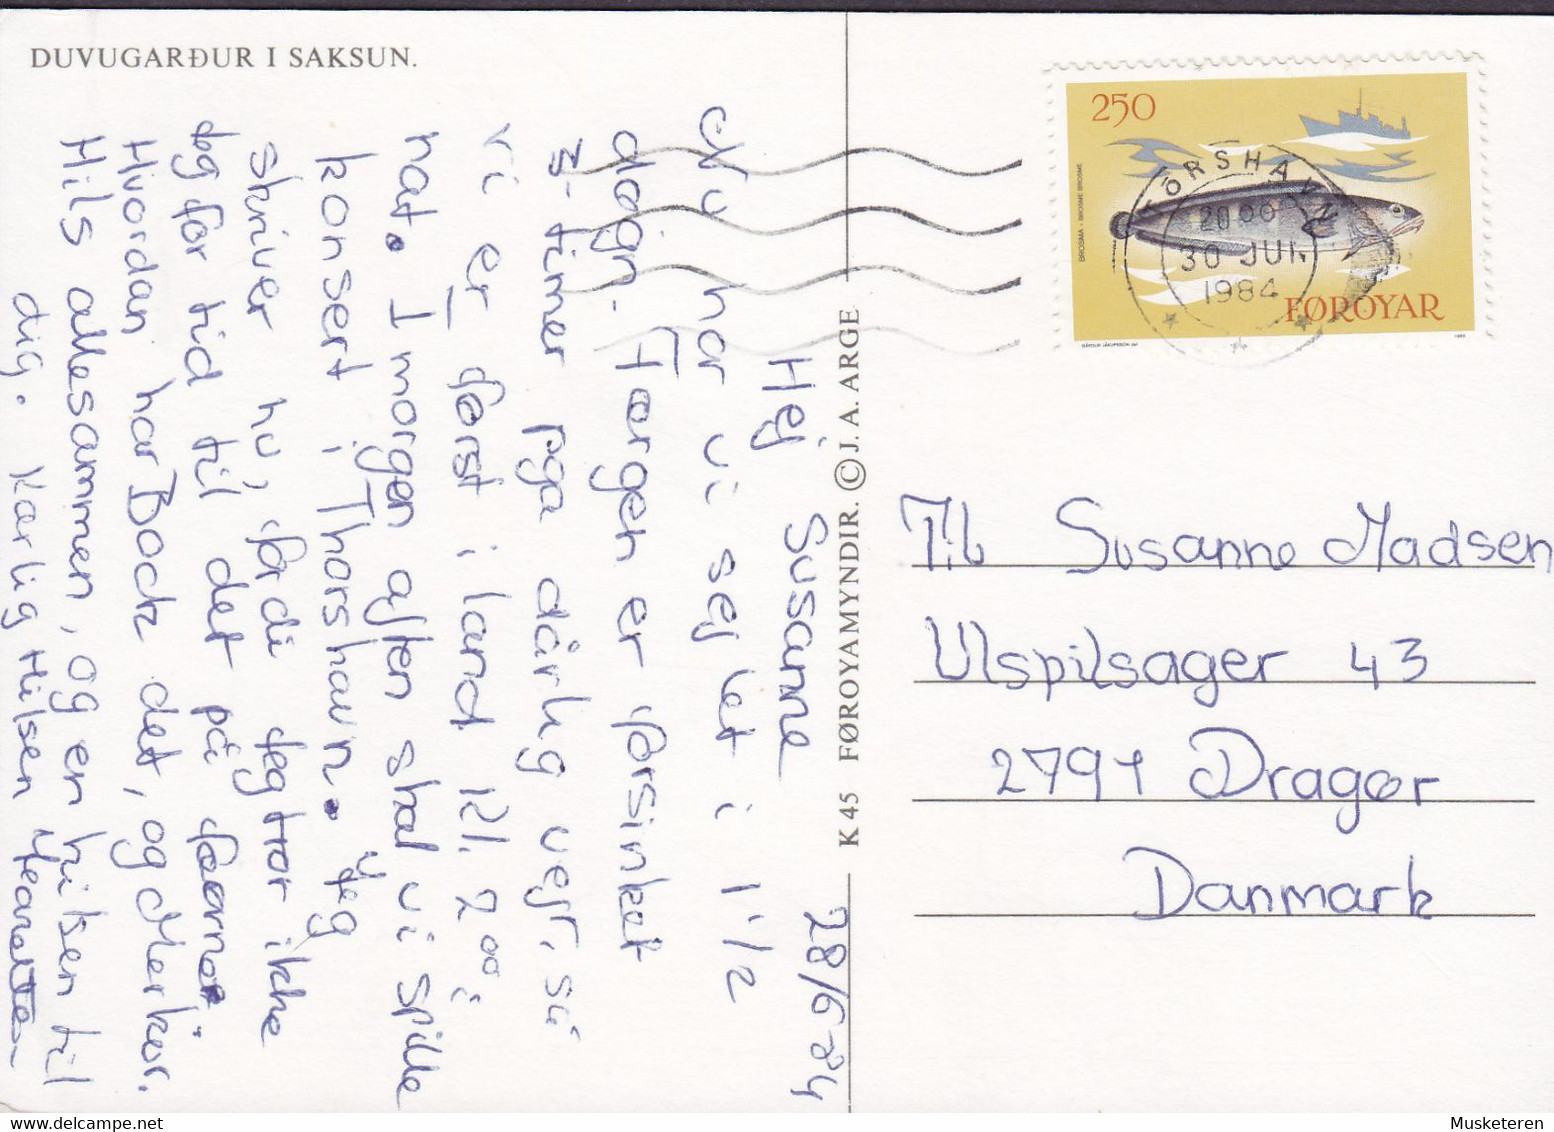 DUVUGARÐUR I SAKSUN.
28/6-84
Hej Susanne
Nu har vi sejlet i 1 1/2
døgn. Færgen er forsinket
3-timer pga dårlig vejr, så
vi er først i land kl. 2.00 i
nat. I morgen aften skal vi spille
konsert i Thorshavn. Jeg
skriver nu, fordi jeg tror ikke
jeg får tid til det på Færøerne.
Hvordan har Bock det, og Merkur.
Hils allesammen, og en hilsen til
dig. Kærlig Hilsen Jeanette
K 45 FØROYAMYNDIR. © J. A. ARGE
250
BROSMA - BROSME BROSME
FØROYAR
TÓRSHAVN
20.00
30 JUN.
1984
Til Susanne Madsen
Ulspilsager 43
2791 Dragør
Danmark
Musketeren